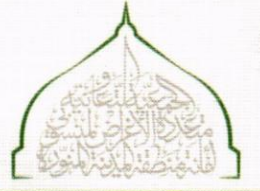 الجمعية التعاونية
متعددة الأغراض لمنسوبي
إمارة منطقة المدينة المنورة